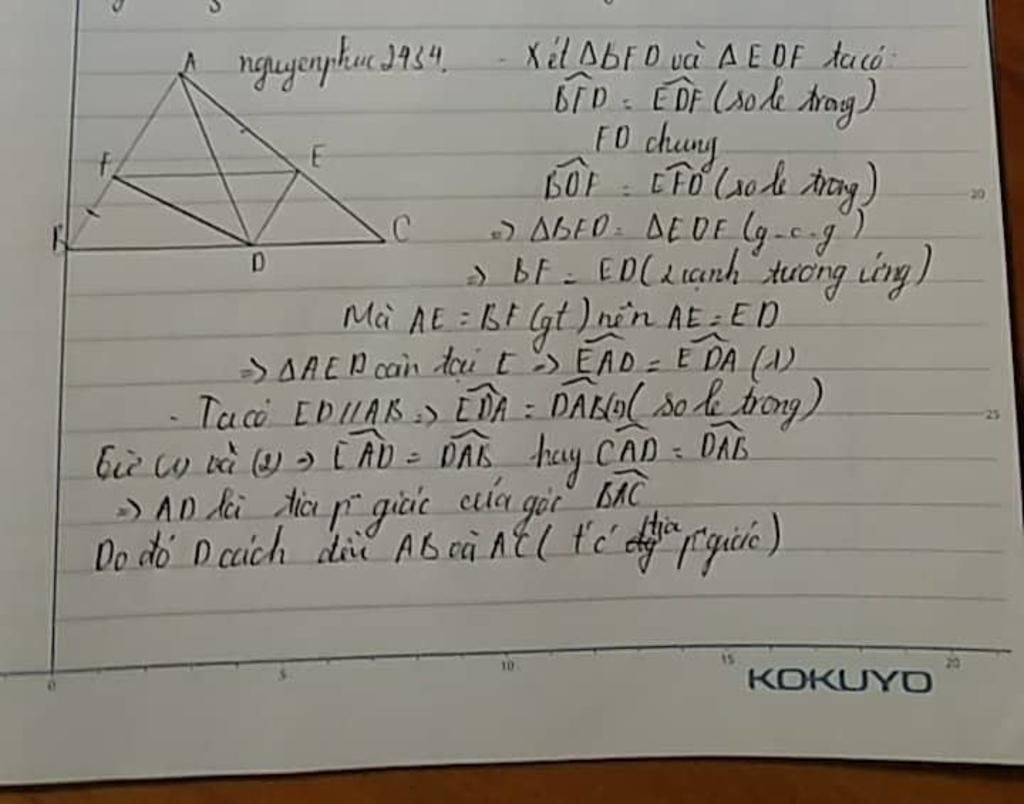 A
nguyenphuc2434.
F
E
B
D
C
- Xét ΔBFD và ΔEDF ta có:
BFD = EDF (so le trong)
FD chung
BDF = EFD (so le trong)
=> ΔBFD = ΔEDF (g-c-g)
=> BF = ED (2 cạnh tương ứng)
Mà AE = BF (gt) nên AE = ED
=> ΔAED cân tại E => EAD = EDA (1)
- Ta có ED // AB => EDA = DAB (2) (so le trong)
Từ (1) và (2) => EAD = DAB hay CAD = DAB
=> AD là tia pᵍ giác của góc BAC
Do đó D cách đều AB và AC (t/c tia pᵍ giác)
20
25
0 5 10 15 20
KOKUYO